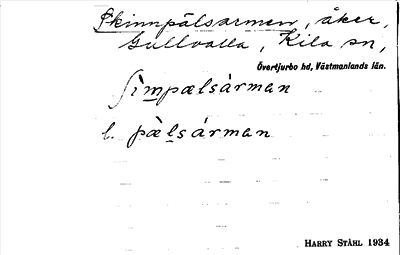 Skinnpälsarmen, åker,
Gullvalla, Kila sn,
Övertjurbo hd, Västmanlands län.
ʃìm̲pæls­árman
l. pæ̀l̲sárman
HARRY STÅHL 1934